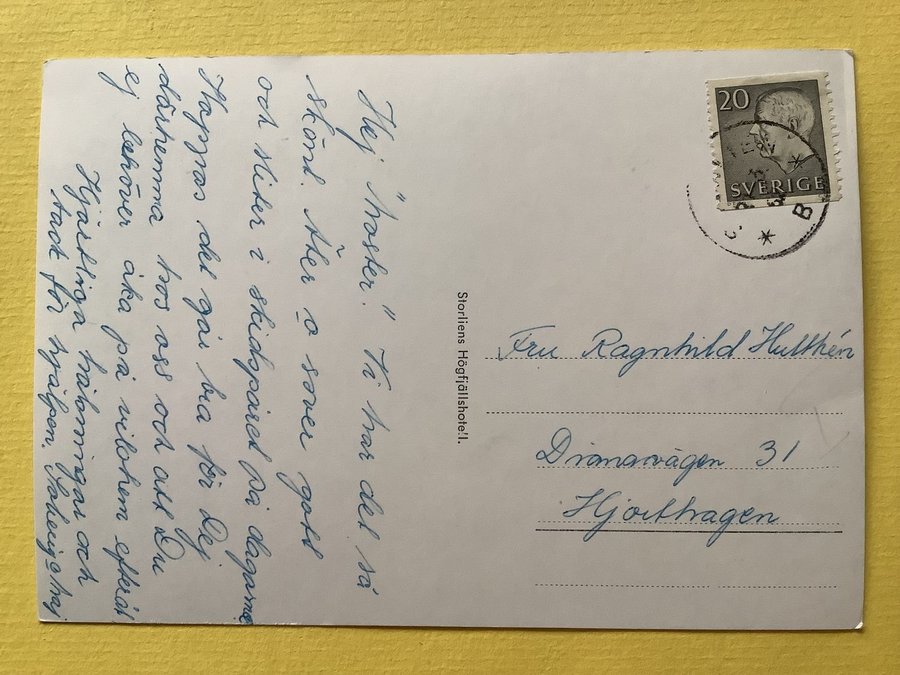 Hej "Moster!" Vi har det så
skönt. Äter o sover gott
och sitter i skidspåret på dagarna
Hoppas det går bra för Dej
därhemma hos oss och att Du
ej behöver åka på vilohem efteråt
Hjärtliga hälsningar och
tack för hjälpen.
Storliens Högfjällshotell.
20
SVERIGE
Fru Ragnhild Hulthén
Dianavägen 31
Hjorthagen